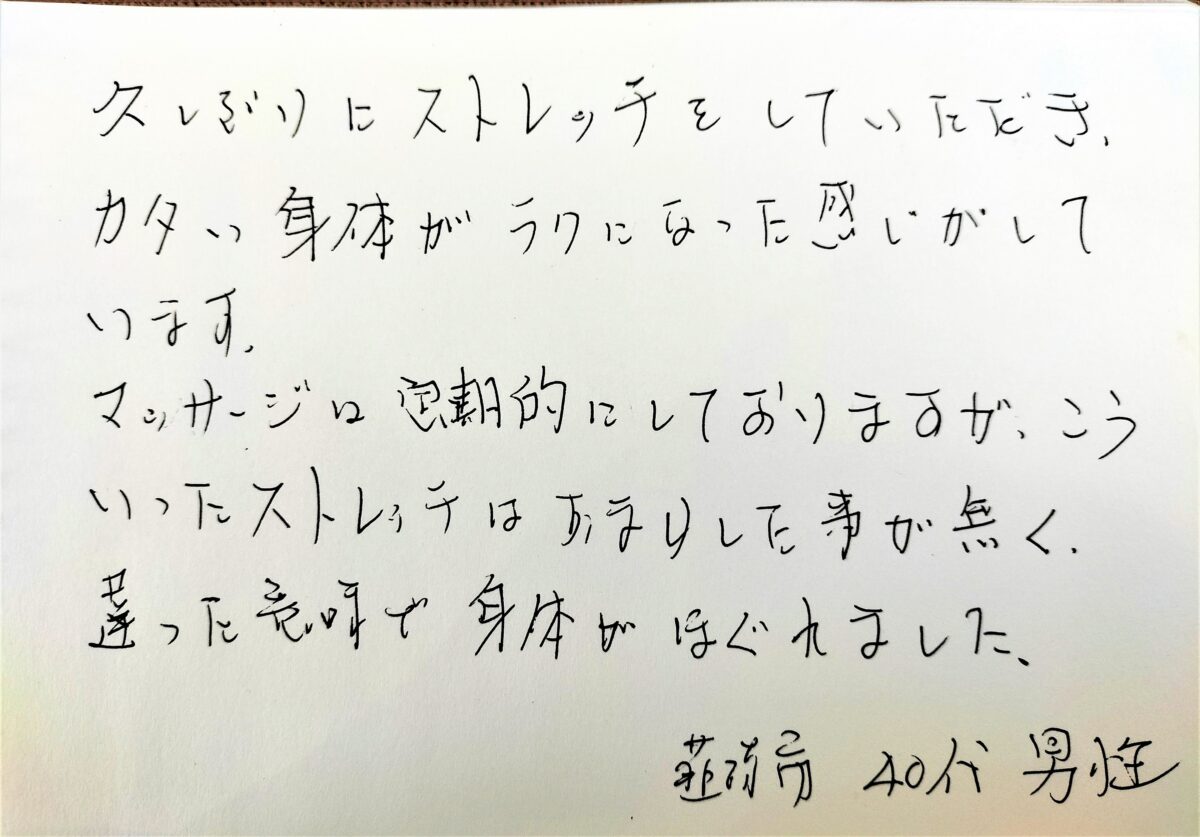 久しぶりにストレッチをしていただき、
カタい身体がラクになった感じがして
います。
マッサージは定期的にしておりますが、こう
いったストレッチはあまりした事が無く、
違った意味で身体がほぐれました、
韮崎市 40代 男性